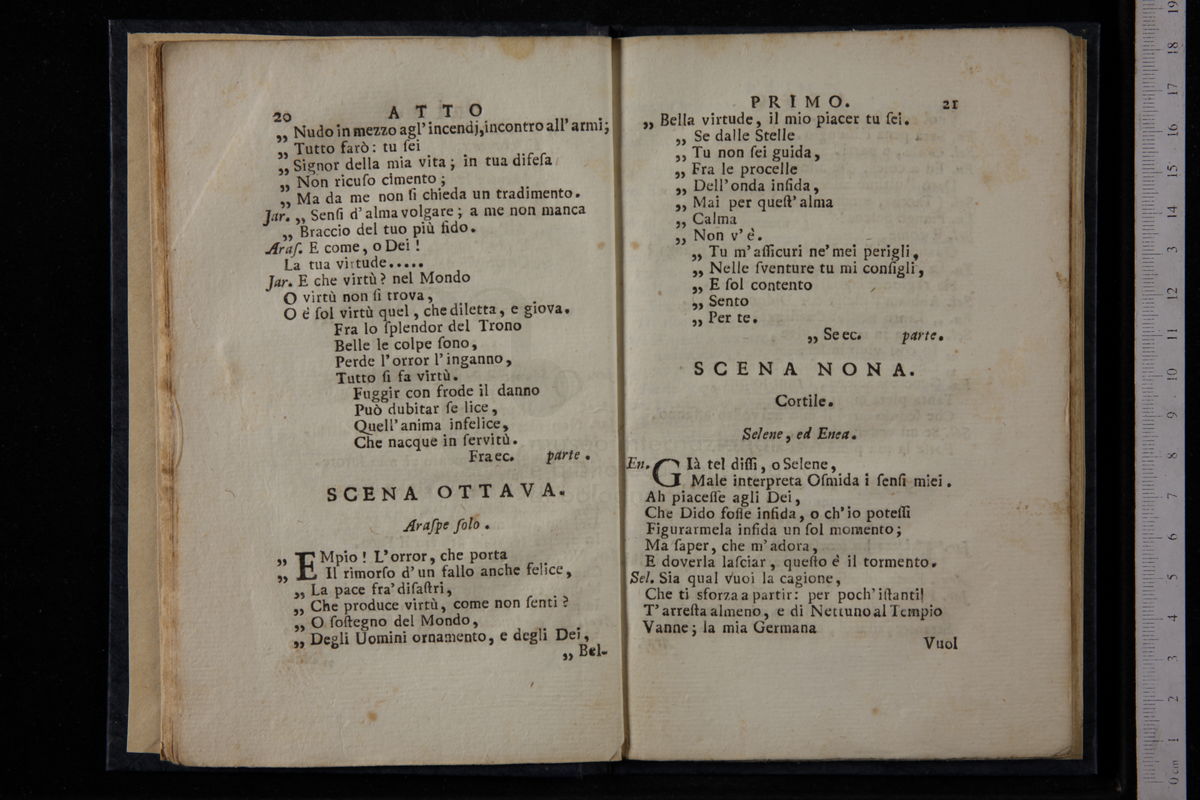 20 ATTO
„ Nudo in mezzo agl' incendj, incontro all' armi;
„ Tutto farò: tu ſei
„ Signor della mia vita; in tua difeſa
„ Non ricuſo cImento;
„ Ma da me non ſi chieda un tradimento.
Jar. „ Senſi d'alma volgare; a me non manca
„ Braccio del tuo più fido.
Araſ. E come, o Dei!
La tua virtude.....
Jar. E che virtù? nel Mondo
O virtù non ſi trova,
O è ſol virtù quel, che diletta, e giova.
Fra lo ſplendor del Trono
Belle le colpe ſono,
Perde l'orror l'inganno,
Tutto ſi fa virtù.
Fuggir con frode il danno
Può dubitar ſe lice,
Quell'anima infelice,
Che nacque in ſervitù.
Fra ec. parte.
SCENA OTTAVA.
Araſpe ſolo.
„ EMpio! L'orror, che porta
„ Il rimorſo d'un fallo anche felice,
„ La pace fra' diſaſtri,
„ Che produce virtù, come non ſenti?
„ O ſoſtegno del Mondo,
„ Degli Uomini ornamento, e degli Dei,
„ Bel-
PRIMO. 21
„ Bella virtude, il mio piacer tu ſei.
„ Se dalle Stelle
„ Tu non ſei guida,
„ Fra le procelle
„ Dell'onda infida,
„ Mai per queſt'alma
„ Calma
„ Non v'è.
„ Tu m'aſſicuri ne' mei perigli,
„ Nelle ſventure tu mi conſigli,
„ E ſol contento
„ Sento
„ Per te.
„ Se ec. parte.
SCENA NONA.
Cortile.
Selene, ed Enea.
En. GIà tel diſſi, o Selene,
Male interpreta Oſmida i ſenſi miei.
Ah piaceſſe agli Dei,
Che Dido foſſe infida, o ch'io poteſſi
Figurarmela infida un ſol momento;
Ma ſaper, che m'adora,
E doverla laſciar, queſto è il tormento.
Sel. Sia qual vuoi la cagione,
Che ti sforza a partir: per poch'iſtanti
T'arreſta almeno, e di Nettuno al Tempio
Vanne; la mia Germana
Vuol
0 cm 1 2 3 4 5 6 7 8 9 10 11 12 13 14 15 16 17 18 19